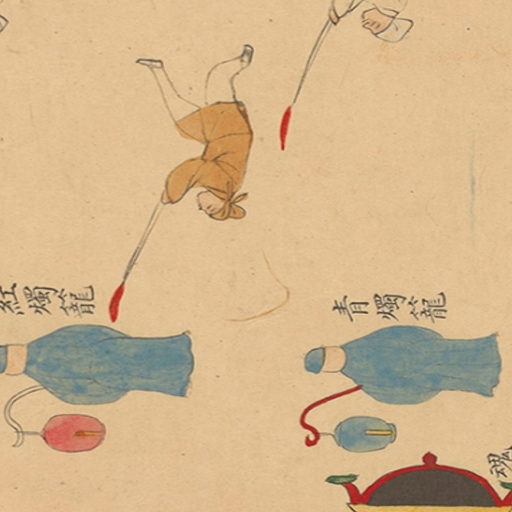 紅燭籠
青燭籠
魂